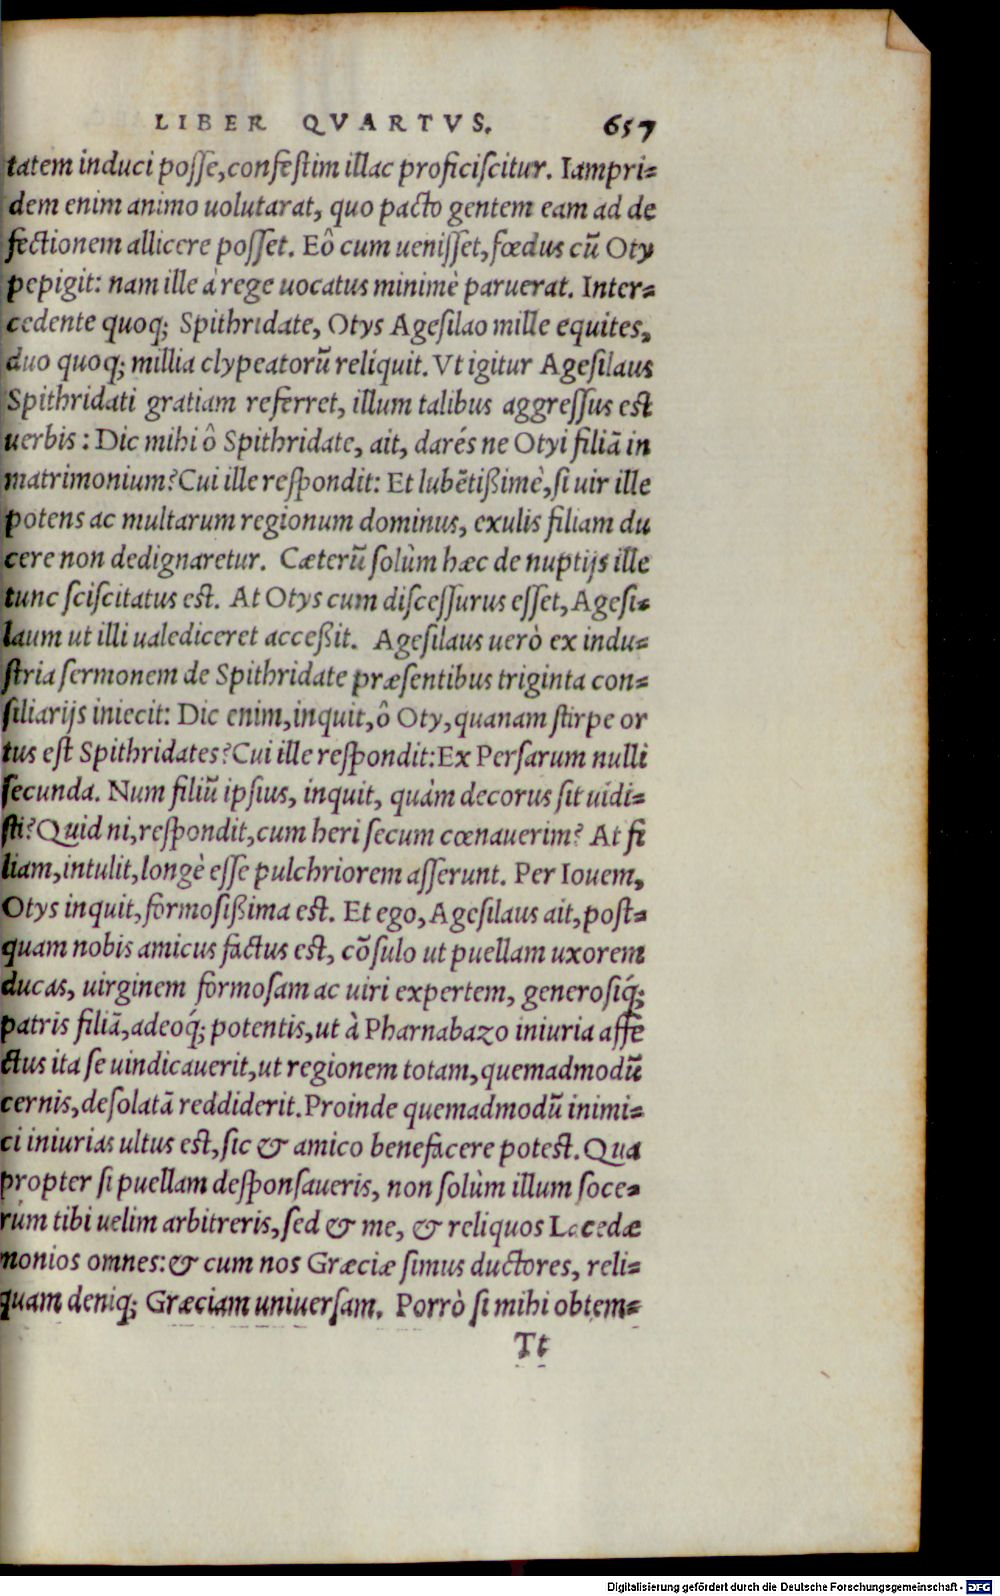 LIBER QVARTVS. 657
tatem induci posse, confestim illac proficiscitur. Iampri=
dem enim animo uolutarat, quo pacto gentem eam ad de
fectionem allicere posset. Eô cum uenisset, fœdus cũ Oty
pepigit: nam ille à rege uocatus minimè paruerat. Inter=
cedente quoq; Spithridate, Otys Agesilao mille equites,
duo quoq; millia clypeatorũ reliquit. Vt igitur Agesilaus
Spithridati gratiam referret, illum talibus aggressus est
uerbis: Dic mihi ô Spithridate, ait, darés ne Otyi filiã in
matrimonium? Cui ille respondit: Et lubẽtißimè, si uir ille
potens ac multarum regionum dominus, exulis filiam du
cere non dedignaretur. Cæterũ solùm hæc de nuptijs ille
tunc sciscitatus est. At Otys cum discessurus esset, Agesi=
laum ut illi ualediceret acceßit. Agesilaus uerò ex indu=
stria sermonem de Spithridate præsentibus triginta con=
siliarijs iniecit: Dic enim, inquit, ô Oty, quanam stirpe or
tus est Spithridates? Cui ille respondit: Ex Persarum nulli
secunda. Num filiũ ipsius, inquit, quàm decorus sit uidi=
sti? Quid ni, respondit, cum heri secum cœnauerim? At fi
liam, intulit, longè esse pulchriorem asserunt. Per Iouem,
Otys inquit, formosißima est. Et ego, Agesilaus ait, post=
quam nobis amicus factus est, cõsulo ut puellam uxorem
ducas, uirginem formosam ac uiri expertem, generosiq́;
patris filiã, adeoq́; potentis, ut à Pharnabazo iniuria affe
ctus ita se uindicauerit, ut regionem totam, quemadmodũ
cernis, desolatã reddiderit. Proinde quemadmodũ inimi=
ci iniurias ultus est, sic & amico benefacere potest. Qua
propter si puellam desponsaueris, non solùm illum soce=
rum tibi uelim arbitreris, sed & me, & reliquos Lacedæ
monios omnes: & cum nos Græciæ simus ductores, reli=
quam deniq; Græciam uniuersam. Porrò si mihi obtem=
Tt
Digitalisierung gefördert durch die Deutsche Forschungsgemeinschaft - DFG